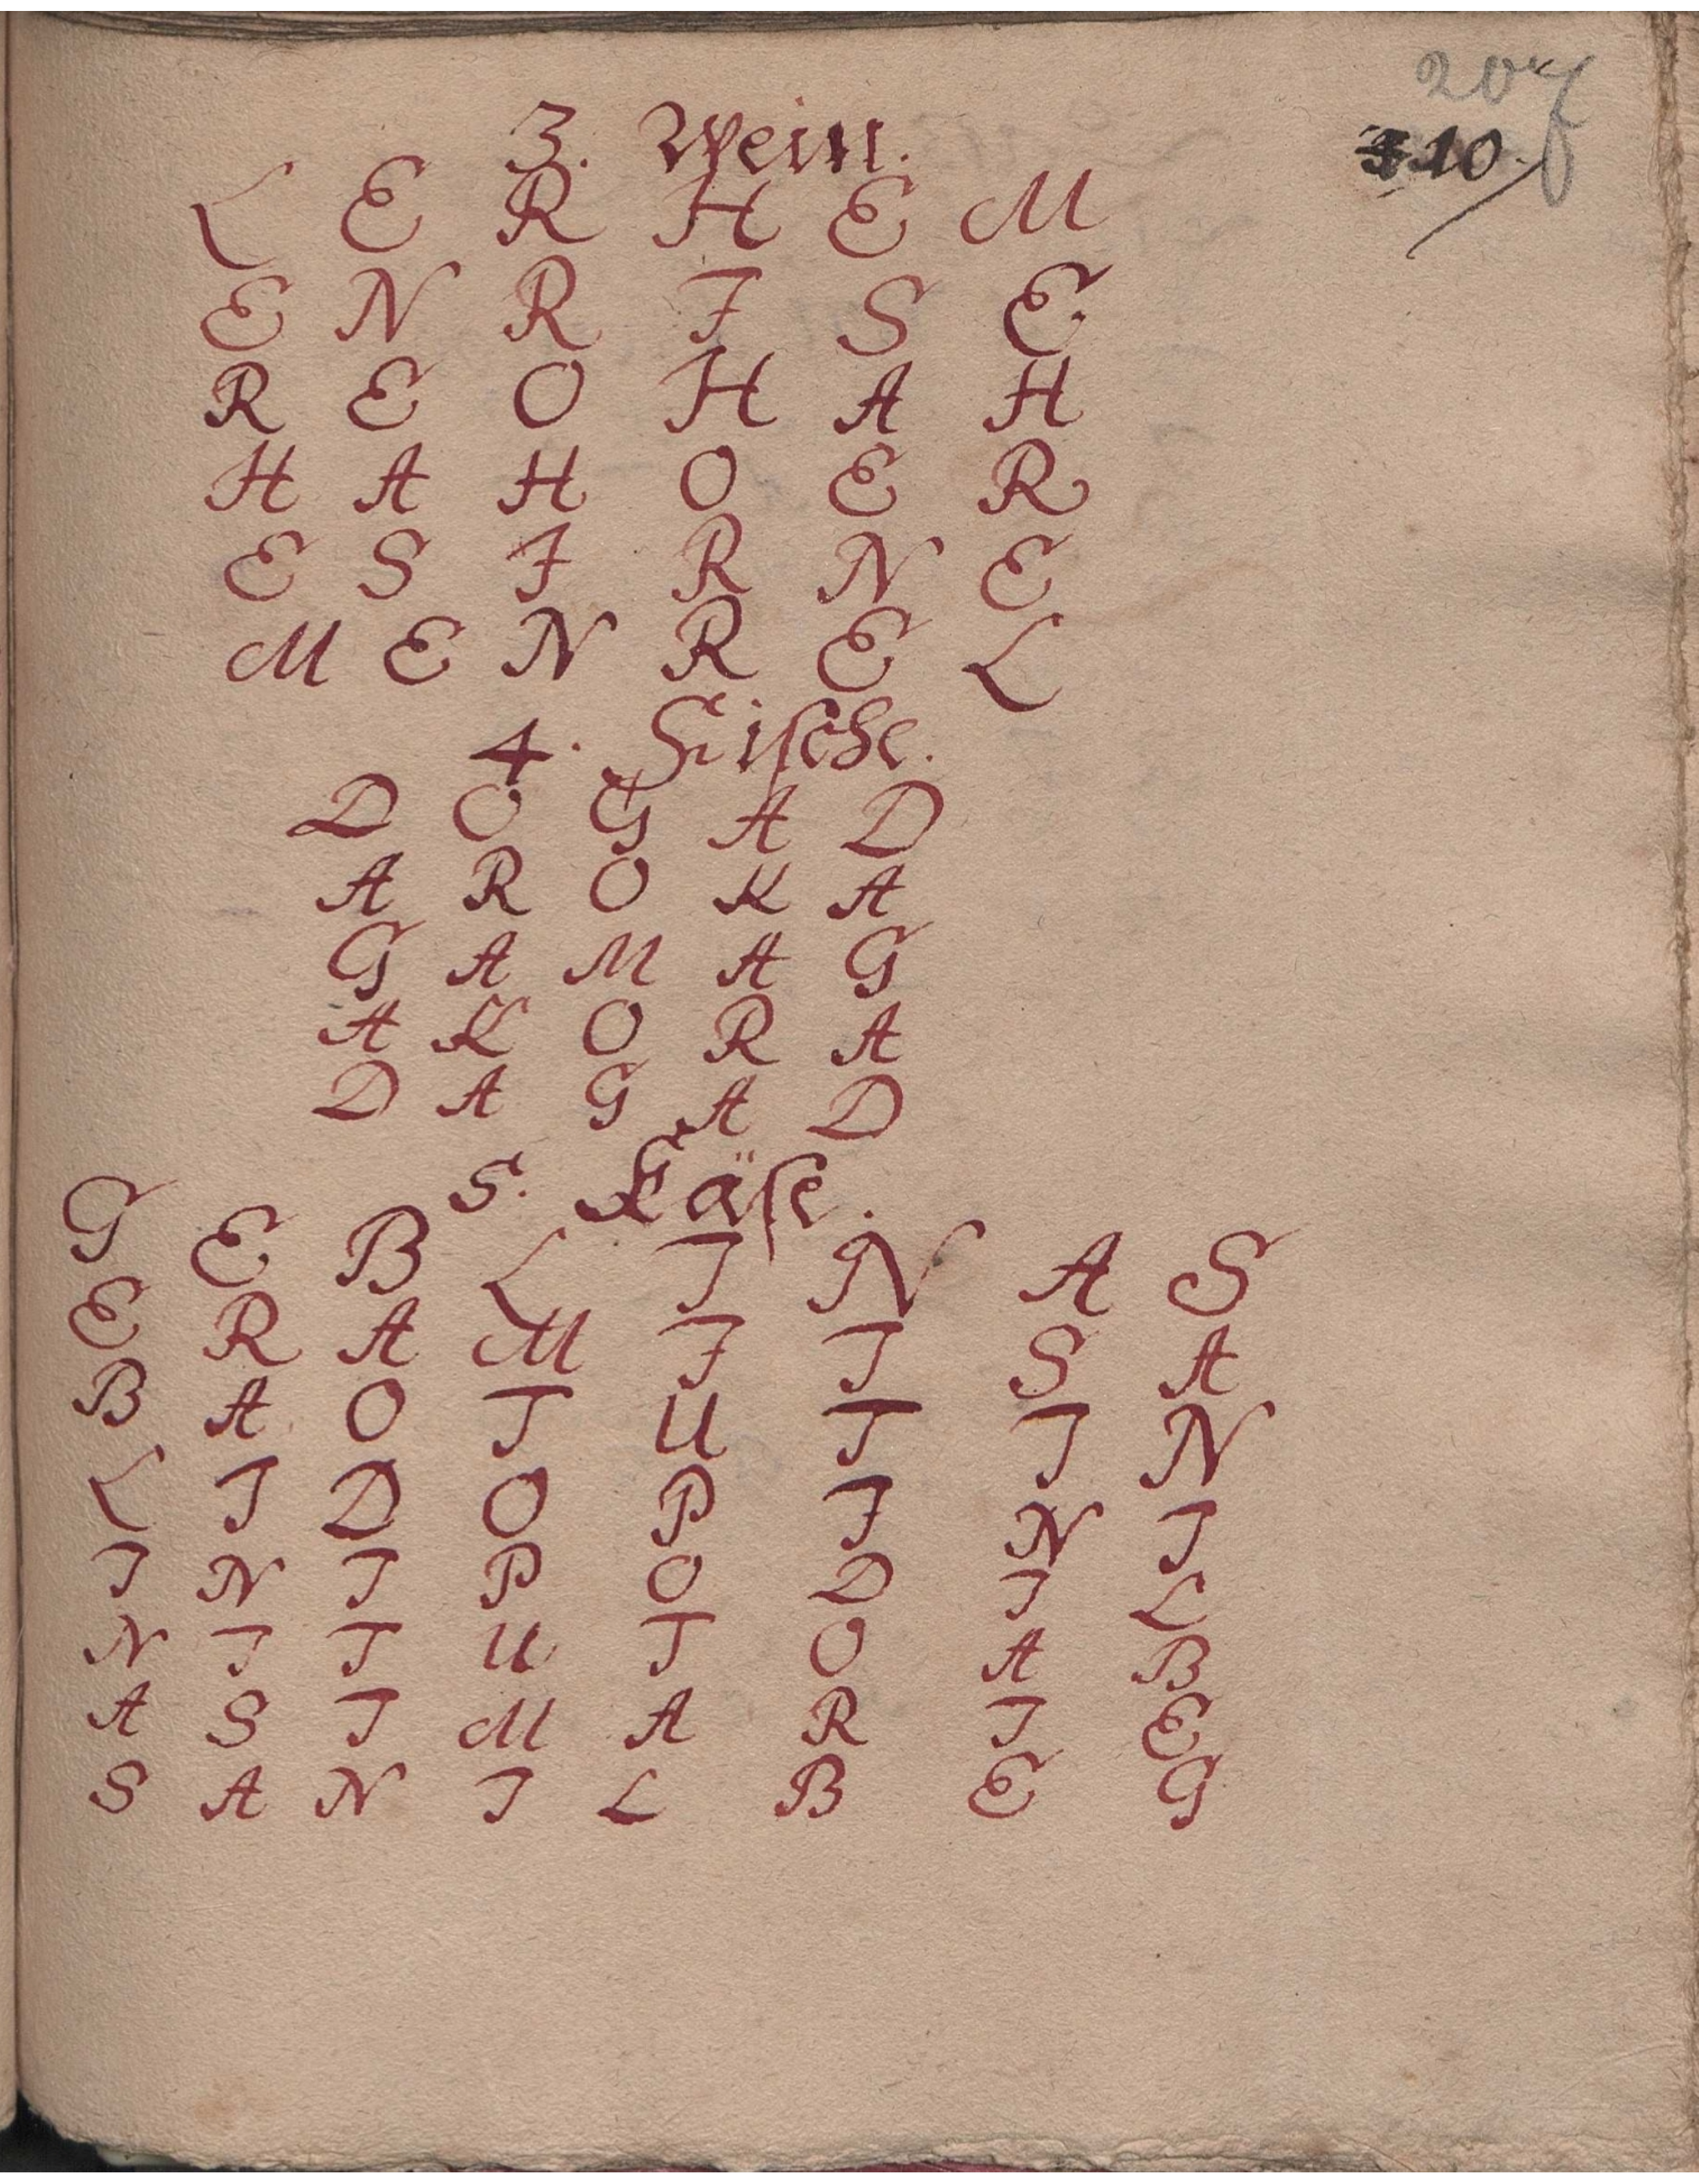 207
110.
3. Wein.
L E R H E M
E N R I S E
R E O H A H
H A H O E R
E S I R N E
M E N R E L
4. Fische.
D O G A D
A R O K A
G A M A G
A K O R A
D A G A D
5. Käse.
G E B L I N A S
E R A M I I S A
B A O T U T I N
L I D O P I N I
I N I P O D I L
N I T U T O A B
A S I M A R I E
S A N I L B E G